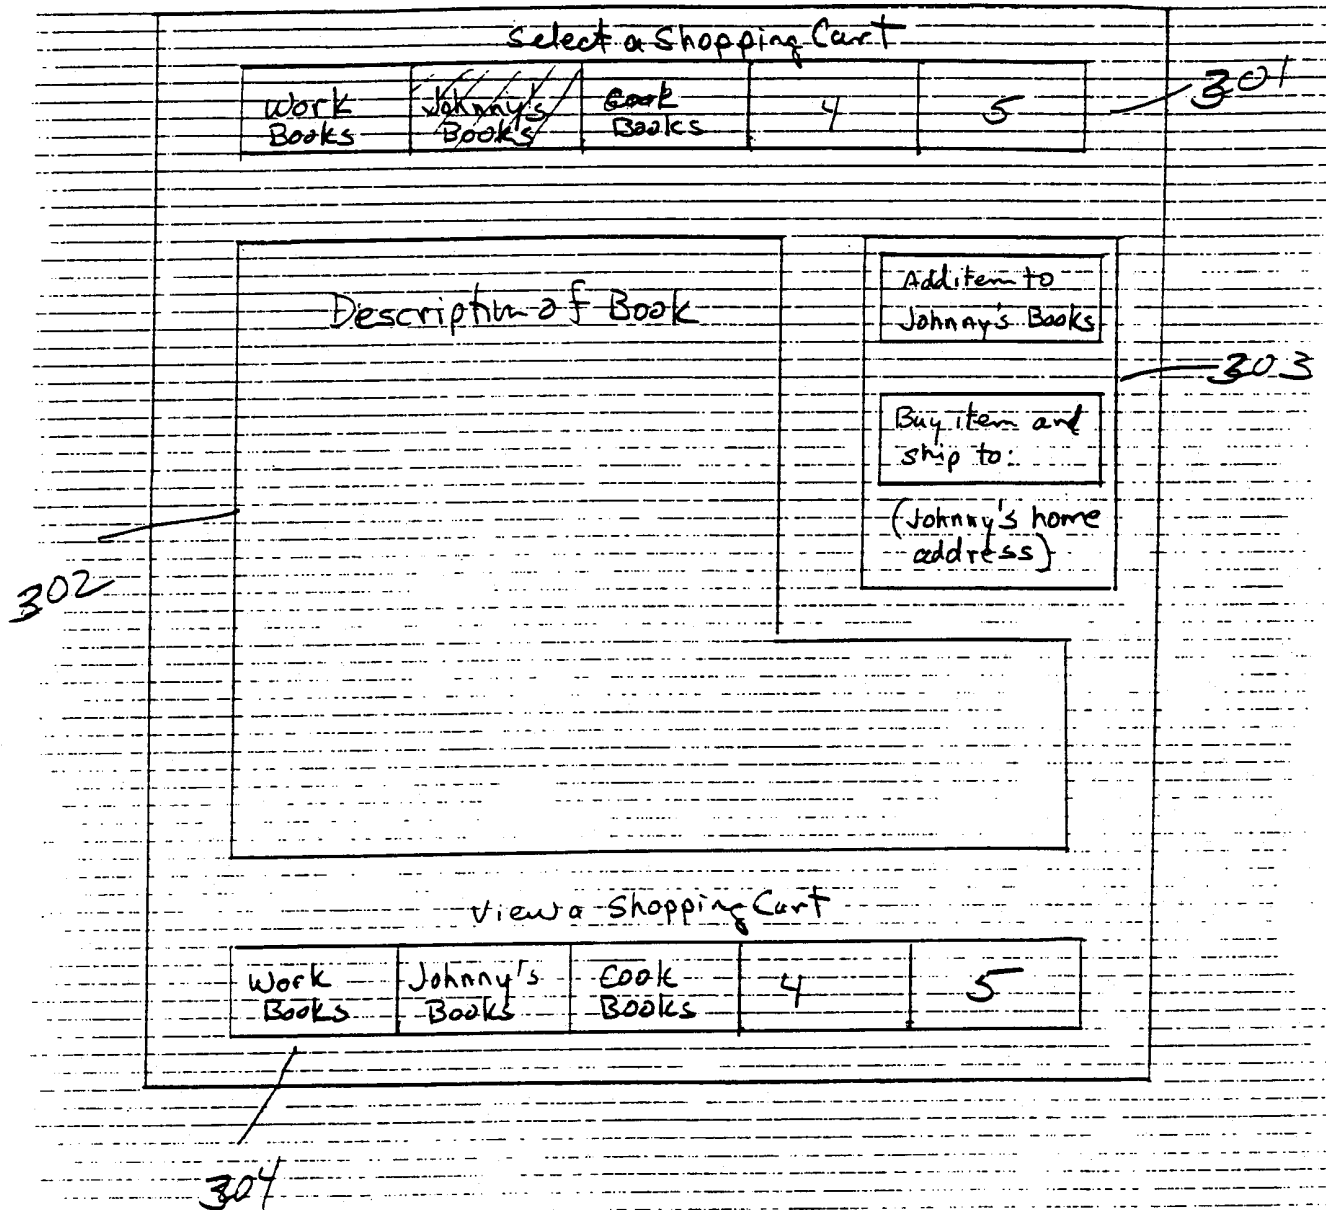 Select a Shopping Cart
Work
Books
Johnny's
Books
Cook
Books
4
5
301
Description of Book
Add item to
Johnny's Books
303
Buy item and
ship to:
(Johnny's home
address)
302
View a Shopping Cart
Work
Books
Johnny's
Books
Cook
Books
4
5
304